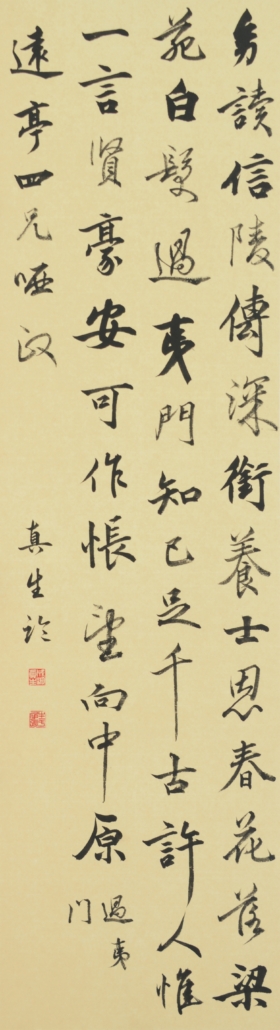 讀信陵傳深銜養士恩春花落梁
苑白髮過夷門知己足千古許人惟
一言賢豪安可作悵望向中原
過夷
門
遠亭四兄哂政
真生